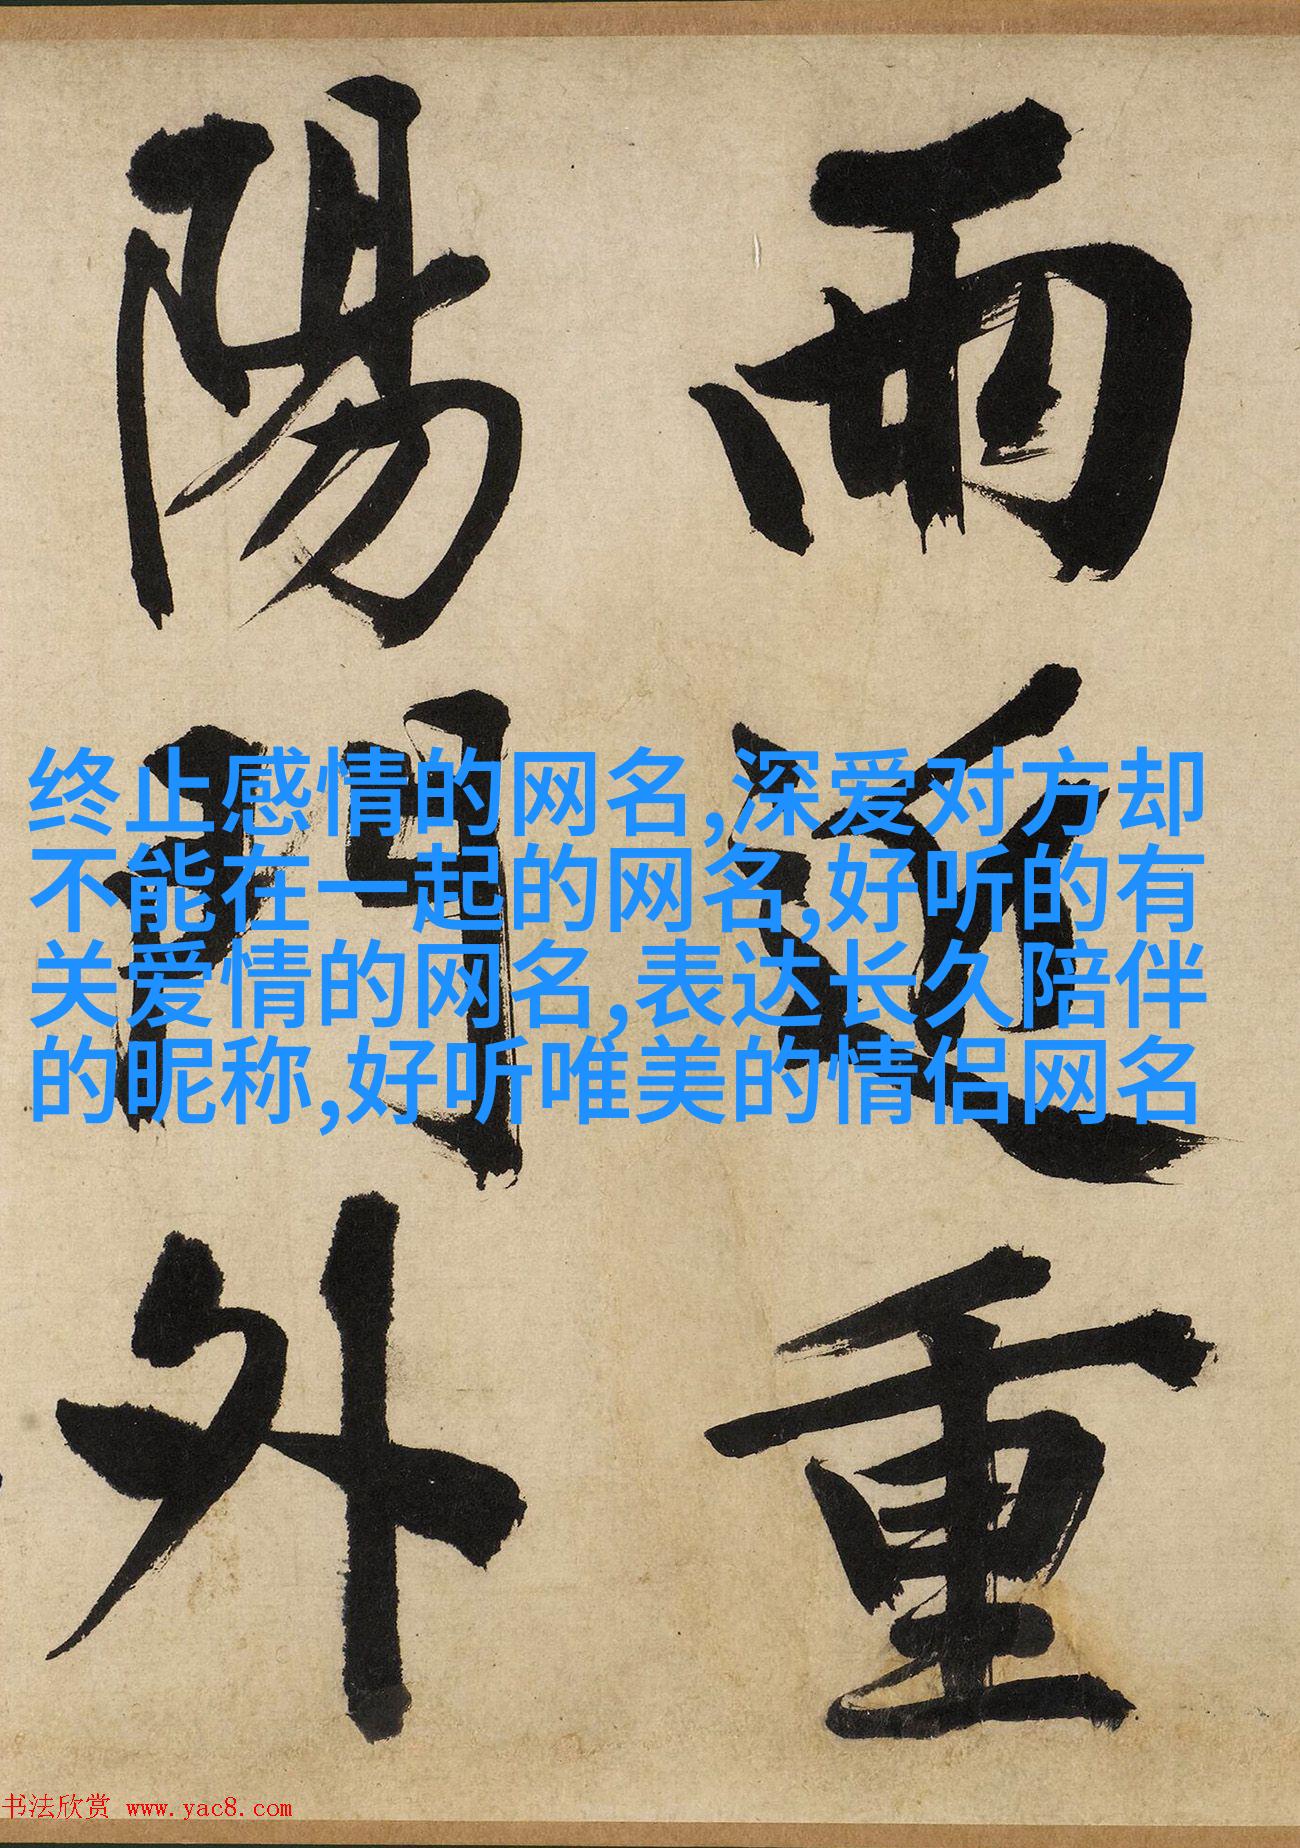 雨近重
陽門外
终止感情的网名,深爱对方却
不能在一起的网名,好听的有
关爱情的网名,表达长久陪伴
的昵称,好听唯美的情侣网名
书法欣赏 www.yac8.com